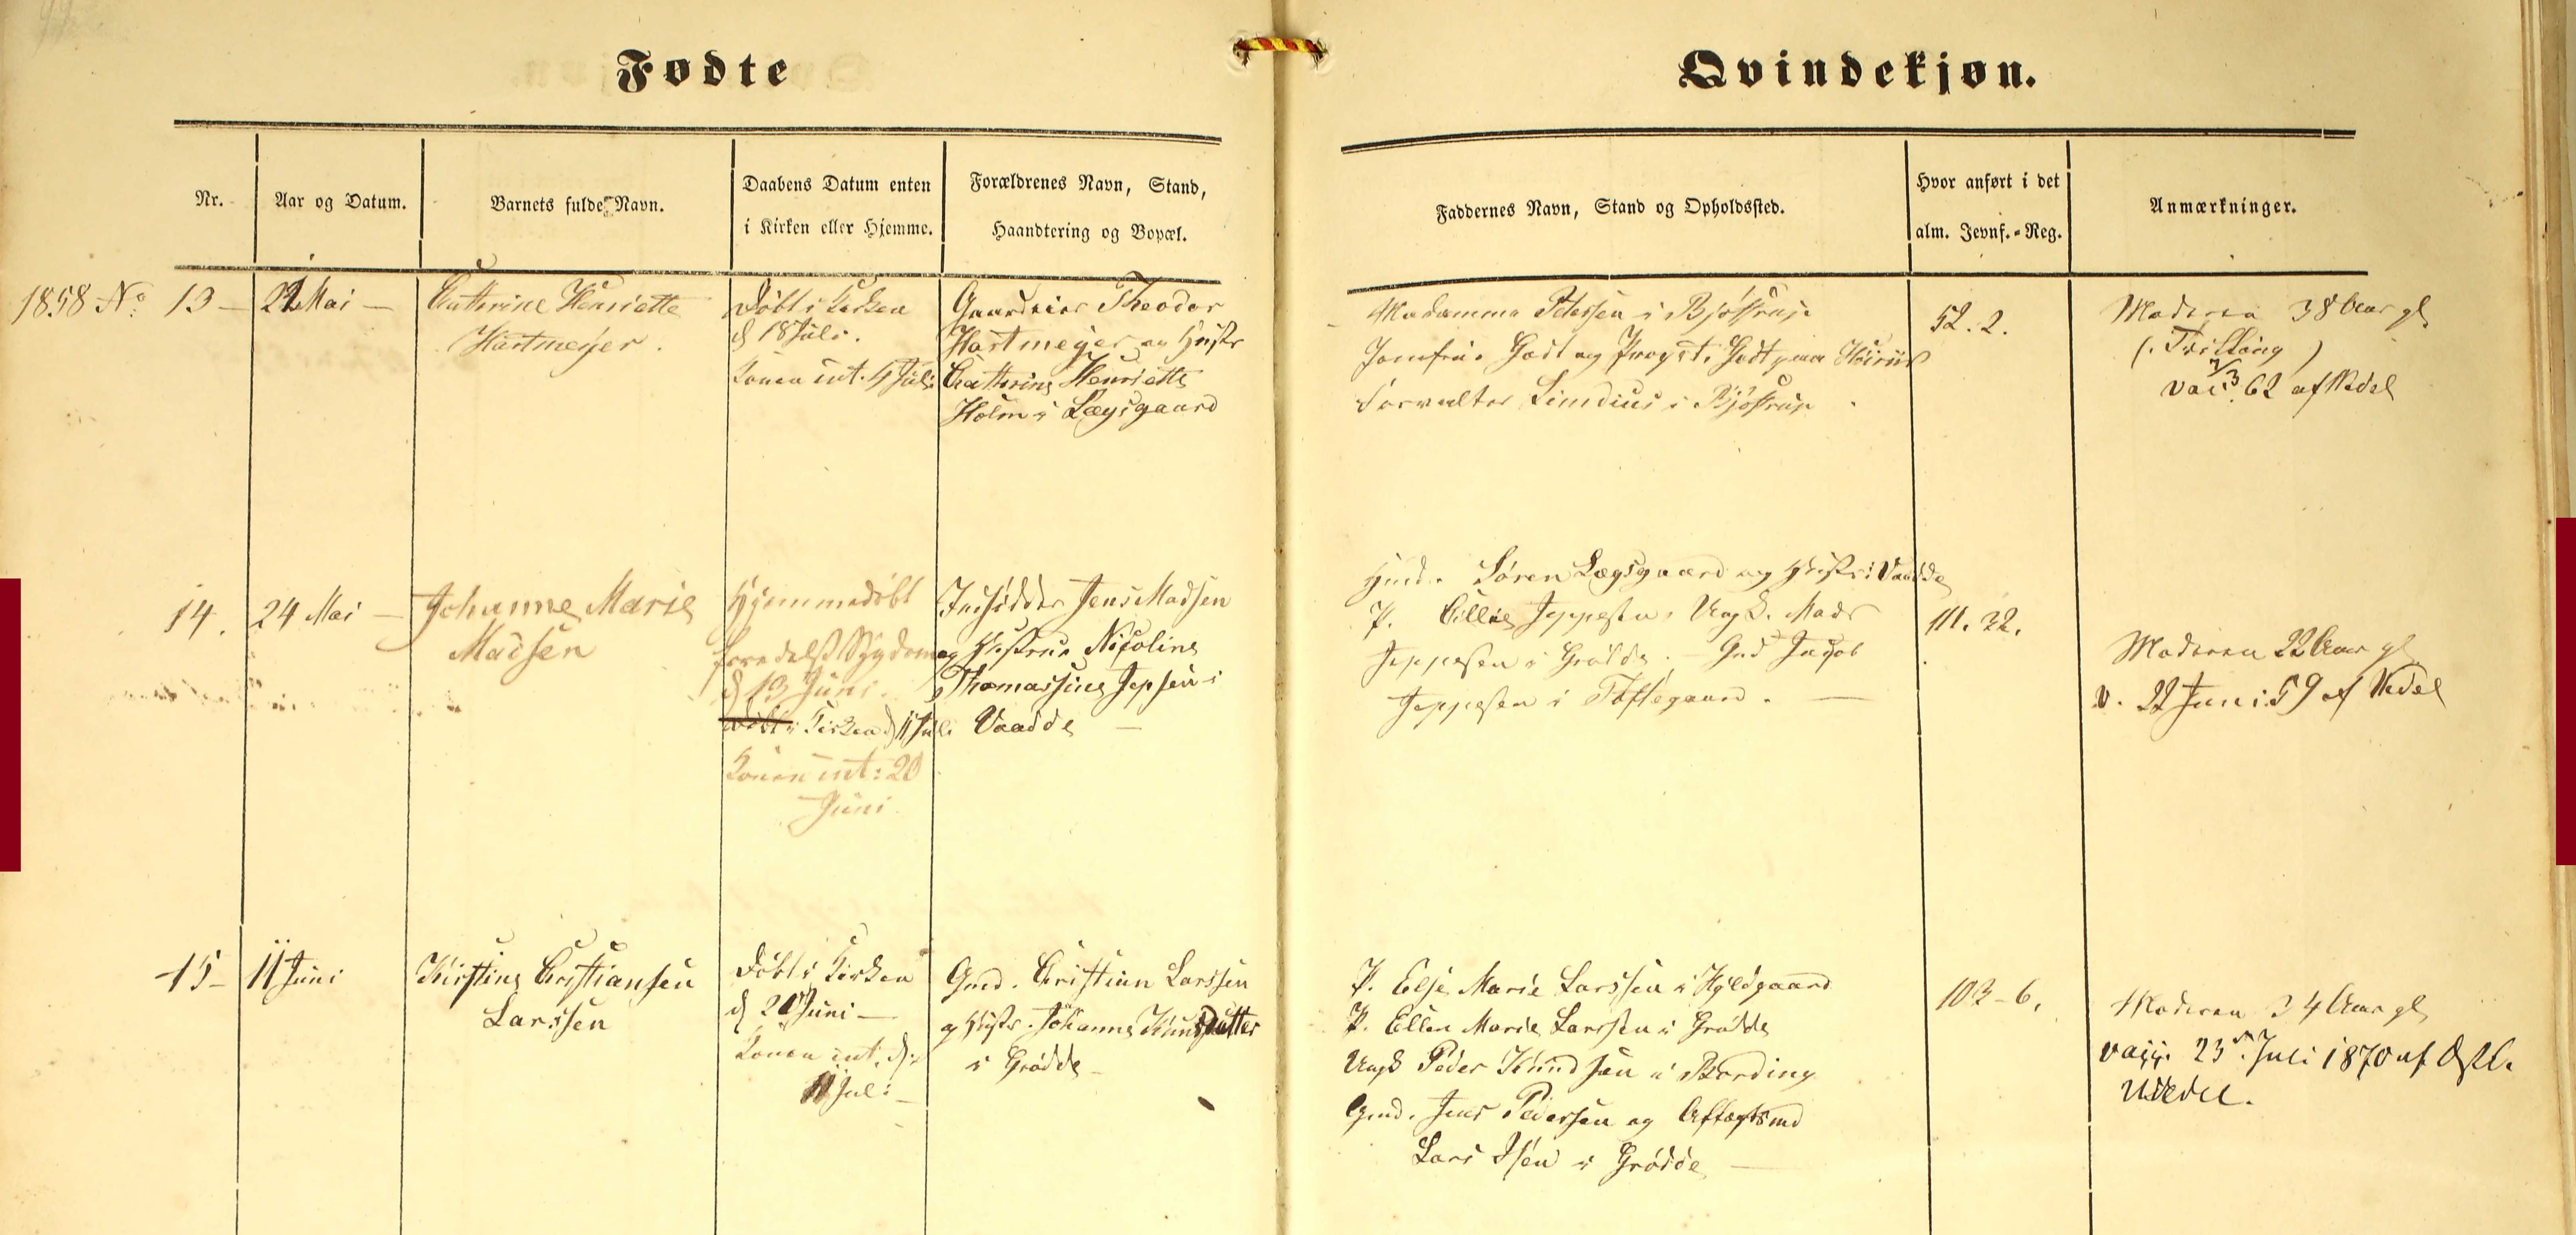 Fødte
Qvindekjøn.
Nr.
Aar og Datum.
Barnets fulde Navn.
Daabens Datum enten
i Kirken eller Hjemme.
Forældrenes Navn, Stand,
Haandtering og Bopæl.
Faddernes Navn, Stand og Opholdssted.
Hvor anført i det
alm. Jevnf.-Reg.
Anmærkninger.
1858 No 13 –
22 Mai –
Cathrine Henriette
Hartmeyer.
Døbt i Kirken
d 18 Juli.
Konen int. 4 Juli
Gaardeier Theodor
Hartmeyer og Hustr
Cathrine Henriette
Holm i Lægsgaard
Madamme Petersen i Bjøstrup.
Jomfru Godt og Propr. Godt paa
Forvalter Lindius i Bjøstrup.
52. 2.
Moderen 38 Aar gl
(. Tvilling )
vac. 7/3 62 af Vedel
14.
24 Mai –
Johanne Marie
Madsen
Hjemmedøbt
formedelst Sygdom
d 13 Juni.
Døbt i Kirken d 11 Juli
Konen int: 20
Juni
Indsidder Jens Madsen
og Hustrue Nicoline
Thomasine Jepsen i
Vaadde –
Hmd. Søren Lægsgaard og Hustr i Vaadde
P. Jeppesen, Ungk. Mads
Jeppesen i Grødde. – Gmd Jacob
Jeppesen i Toftegaard. –
111. 32.
Moderen 22 Aar gl
v. 22 Juni 59 af Vedel
15 –
11 Juni
Kirstine Cristiansen
Larssen
Døbt i Kirken
d 20 Juni –
Konen int. d.
11 Juli –
Gmd. Christian Larssen
og Hustr. Johanne Knudsdatter
i Grødde –
P. Else Marie Larssen i Hyldgaard
P. Ellen Marie Larssen i Grødde
Ungk Peder Knudsen i Bording
Gmd. Jens Pedersen og Aftægtsmd
Lars Isen i Grødde –
103 – 6.
Moderen 34 Aar gl
vacc. 23 Juli 1870 af
Wedel.